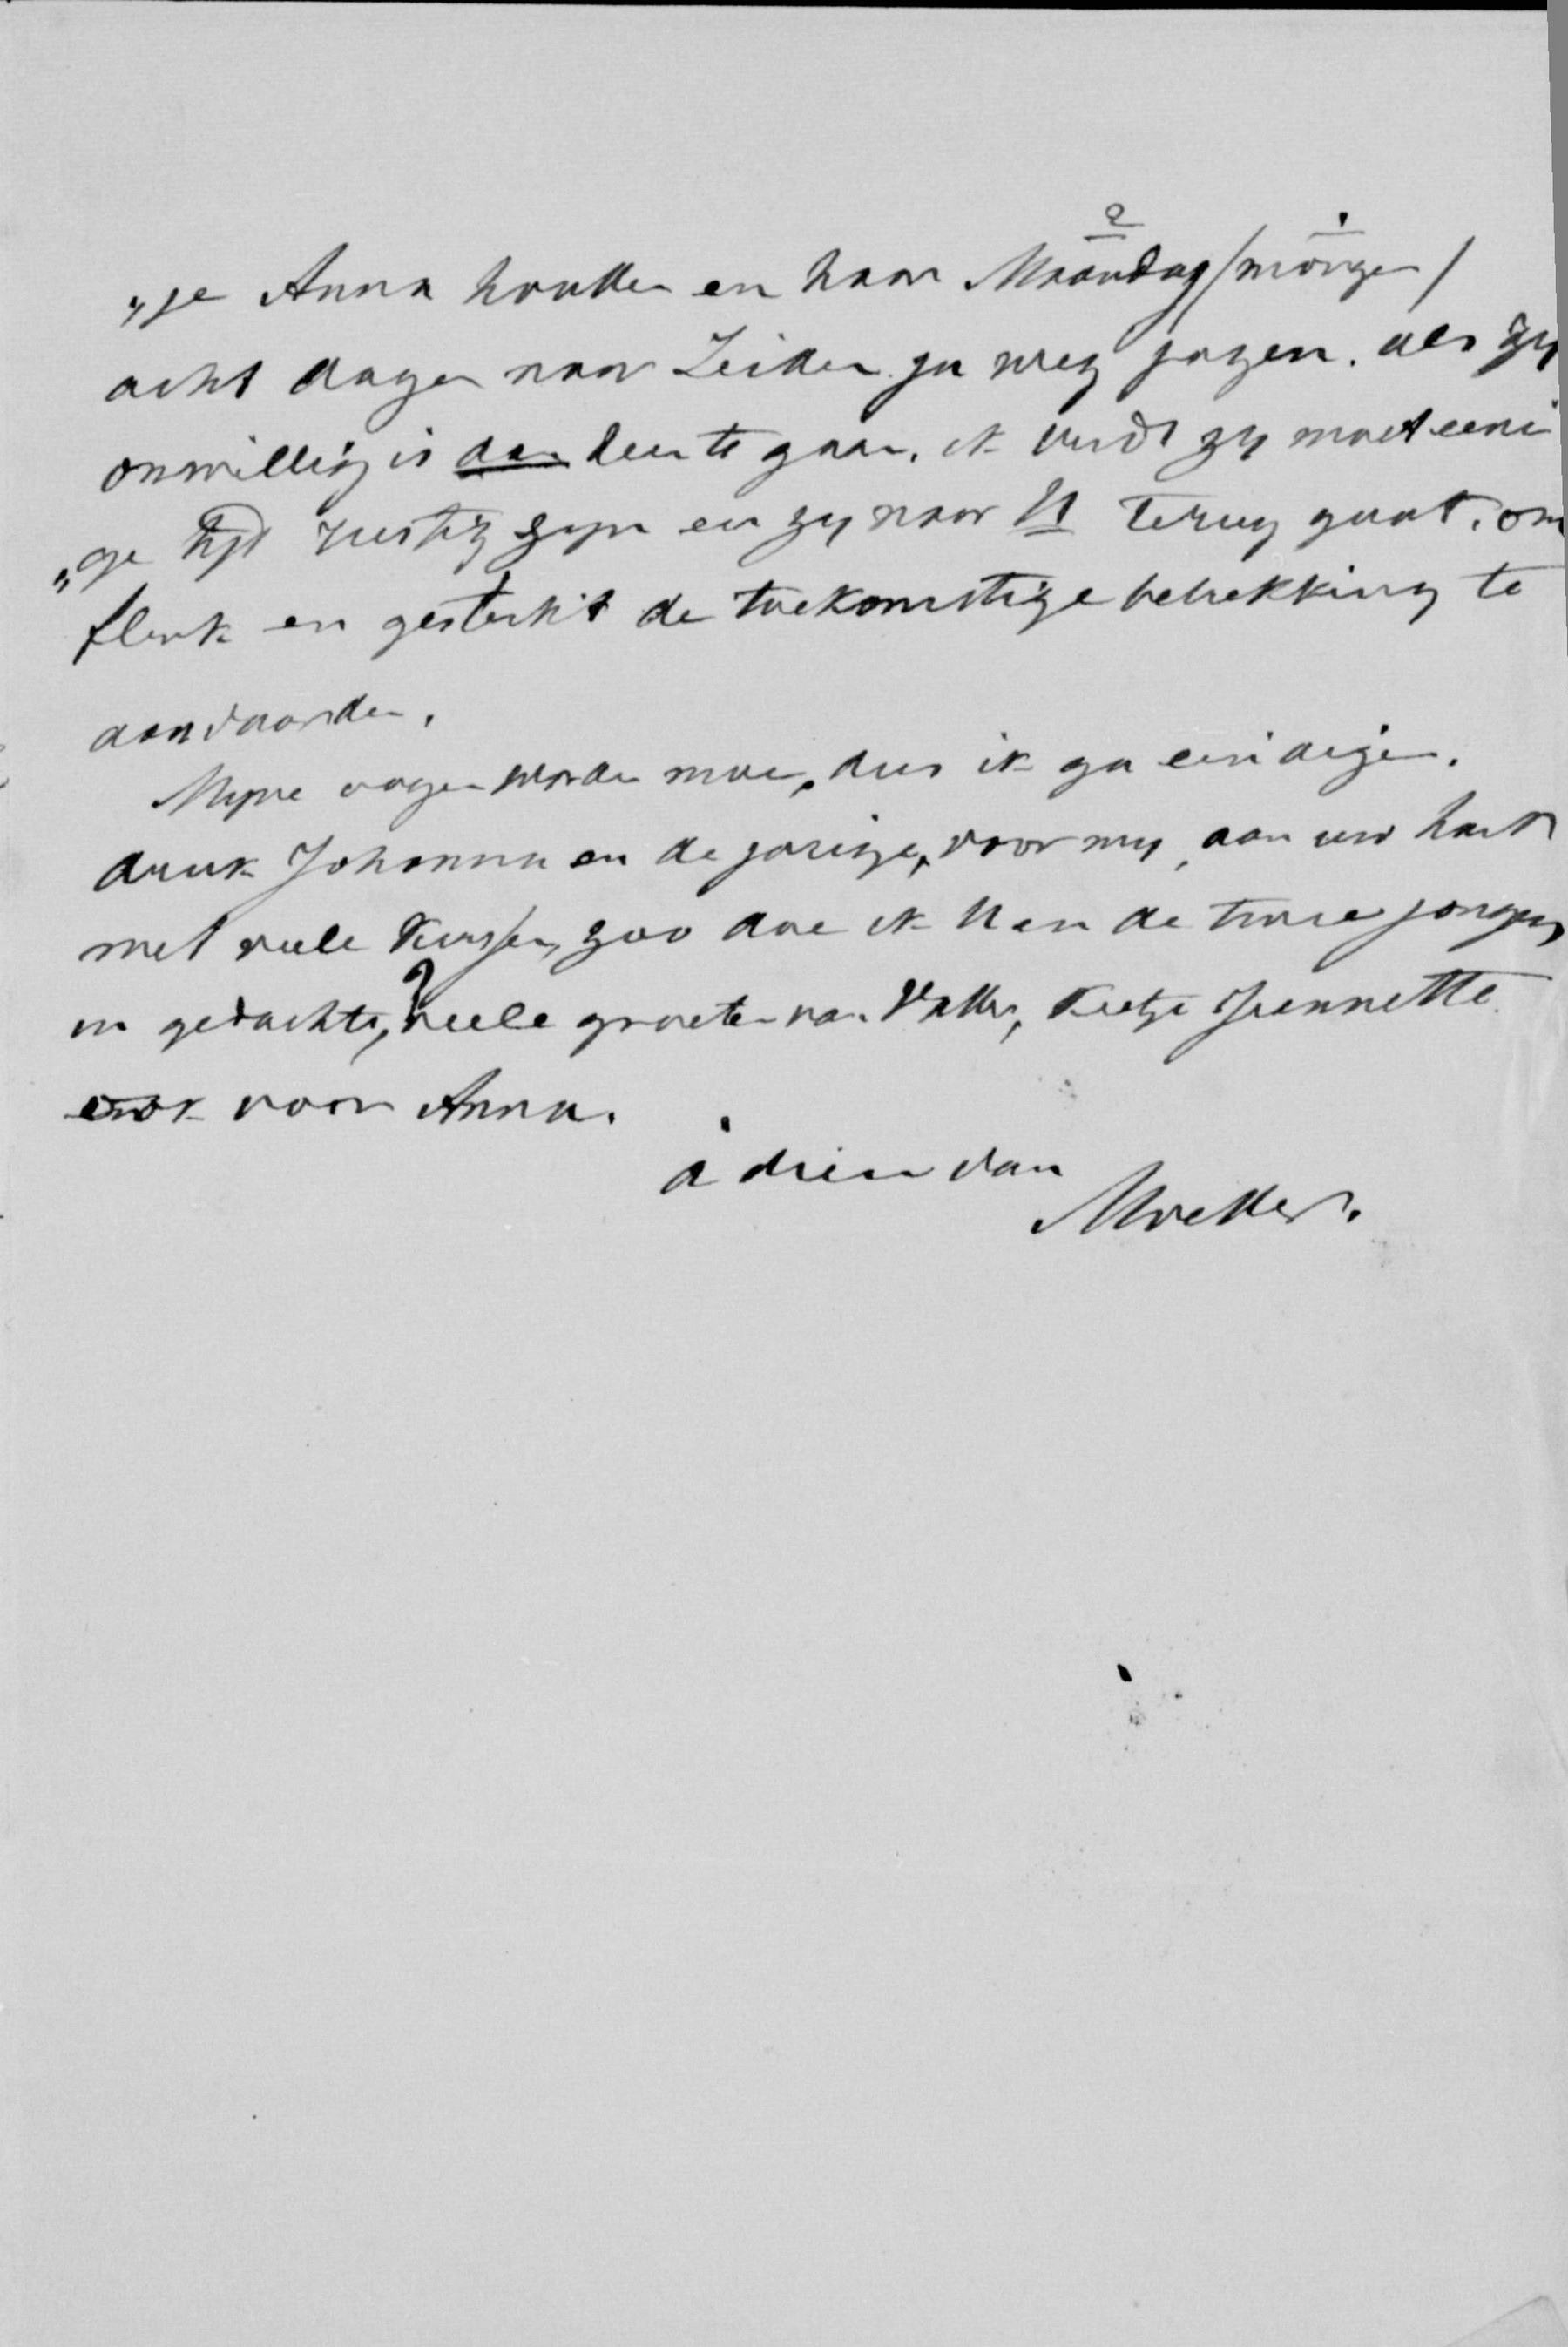 „je Anna houden en haar Maandag/morgen/
acht dagen naar Leiden ga weg jagen. als zy
onwillig is dan heen te gaan. ik vindt zy moet eeni
„ge tyd rustig zyn en zy naar U terug gaat. om
flink en gesterkt de toekomstige betrekking te
aanvaarden.
Myne oogen worden moe, dus ik ga eindigen.
druk Johanna en de jarige, voor my, aan uw hart
met veele kussen, zoo doe ik U en de twee jongens
in gedachte, veele groeten van Vader, Keetje Jeannette
ook voor Anna.
à dieu van
Moeder.